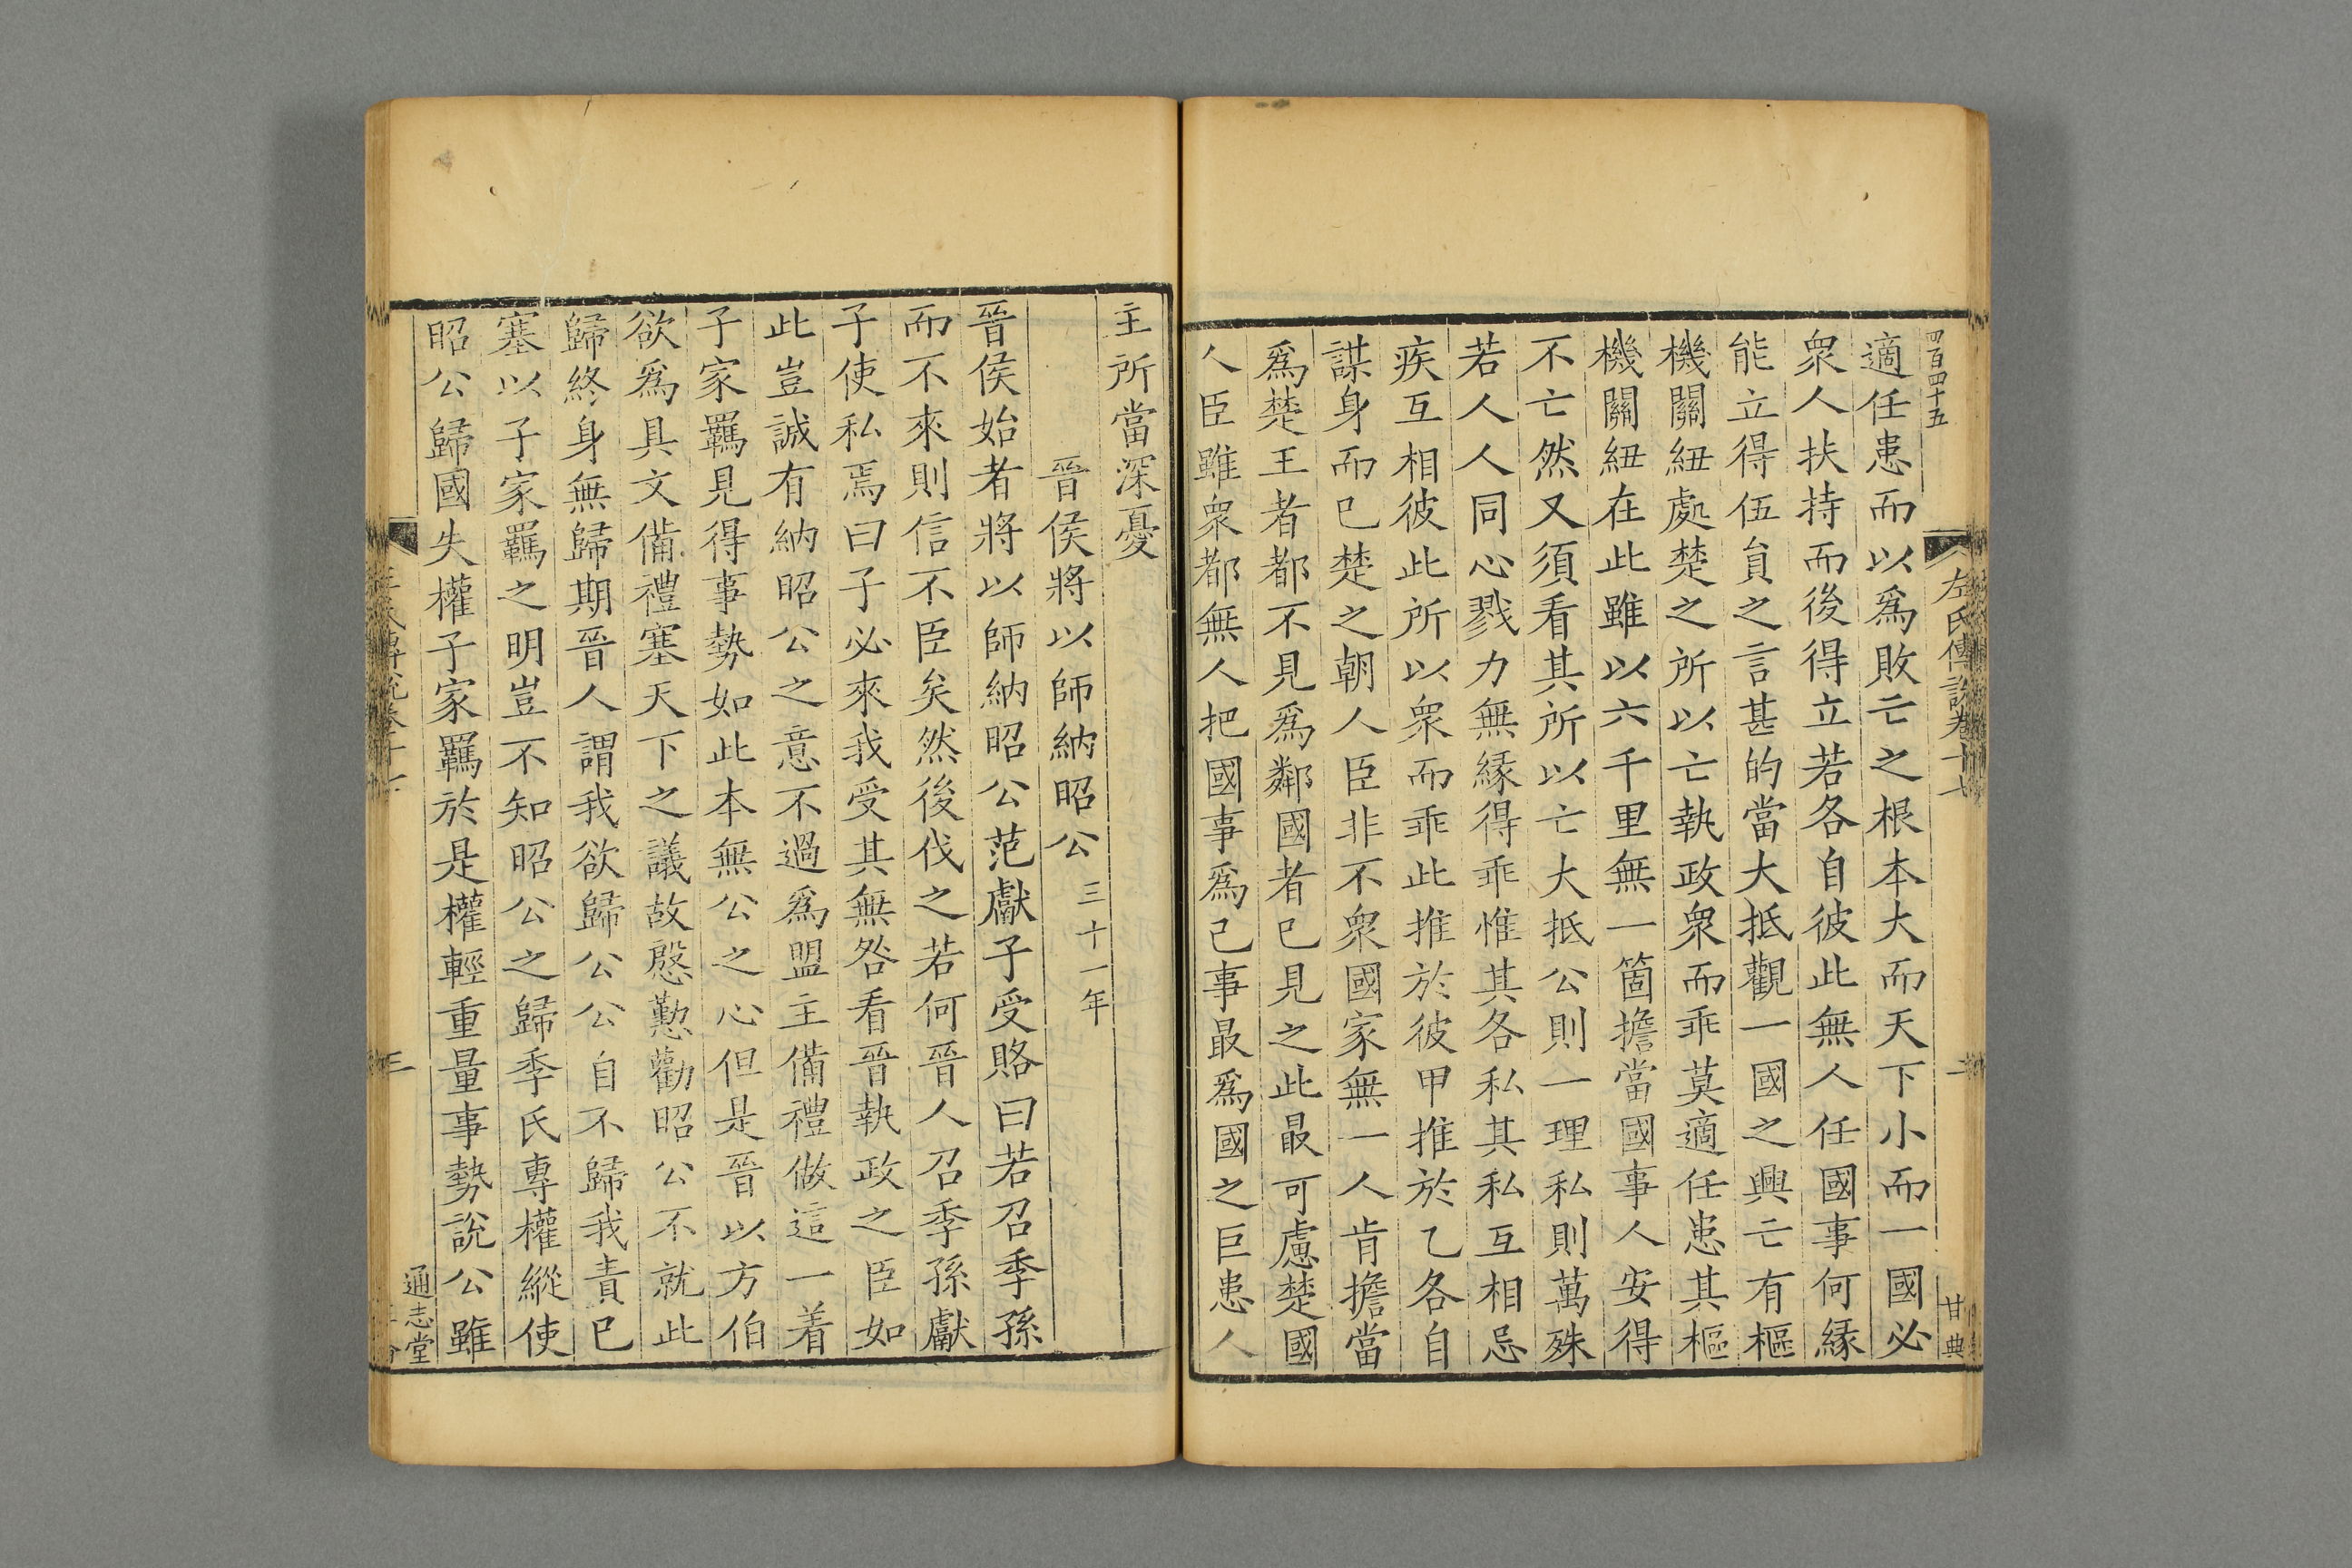 四百四十五
左氏傳說卷十七
二
甘典
適任患而以爲敗亡之根本大而天下小而一國必
衆人扶持而後得立若各自彼此無人任國事何緣
能立得伍員之言甚的當大抵觀一國之興亡有樞
機關紐處楚之所以亡執政衆而乖莫適任患其樞
機關紐在此雖以六千里無一箇擔當國事人安得
不亡然又須看其所以亡大抵公則一理私則萬殊
若人人同心戮力無緣得乖惟其各私其私互相忌
疾互相彼此所以衆而乖此推於彼甲推於乙各自
謀身而已楚之朝人臣非不衆國家無一人肯擔當
爲楚王者都不見爲鄰國者已見之此最可慮楚國
人臣雖衆都無人把國事爲己事最爲國之巨患人
主所當深憂
晉侯將以師納昭公三十一年
晉侯始者將以師納昭公范獻子受賂曰若召季孫
而不來則信不臣矣然後伐之若何晉人召季孫獻
子使私焉曰子必來我受其無咎看晉執政之臣如
此豈誠有納昭公之意不過爲盟主備禮做這一着
子家羈見得事勢如此本無公之心但是晉以方伯
欲爲具文備禮塞天下之議故慇懃勸昭公不就此
歸終身無歸期晉人謂我欲歸公公自不歸我責已
塞以子家羈之明豈不知昭公之歸季氏專權縱使
昭公歸國失權子家羈於是權輕重量事勢說公雖
三
通志堂